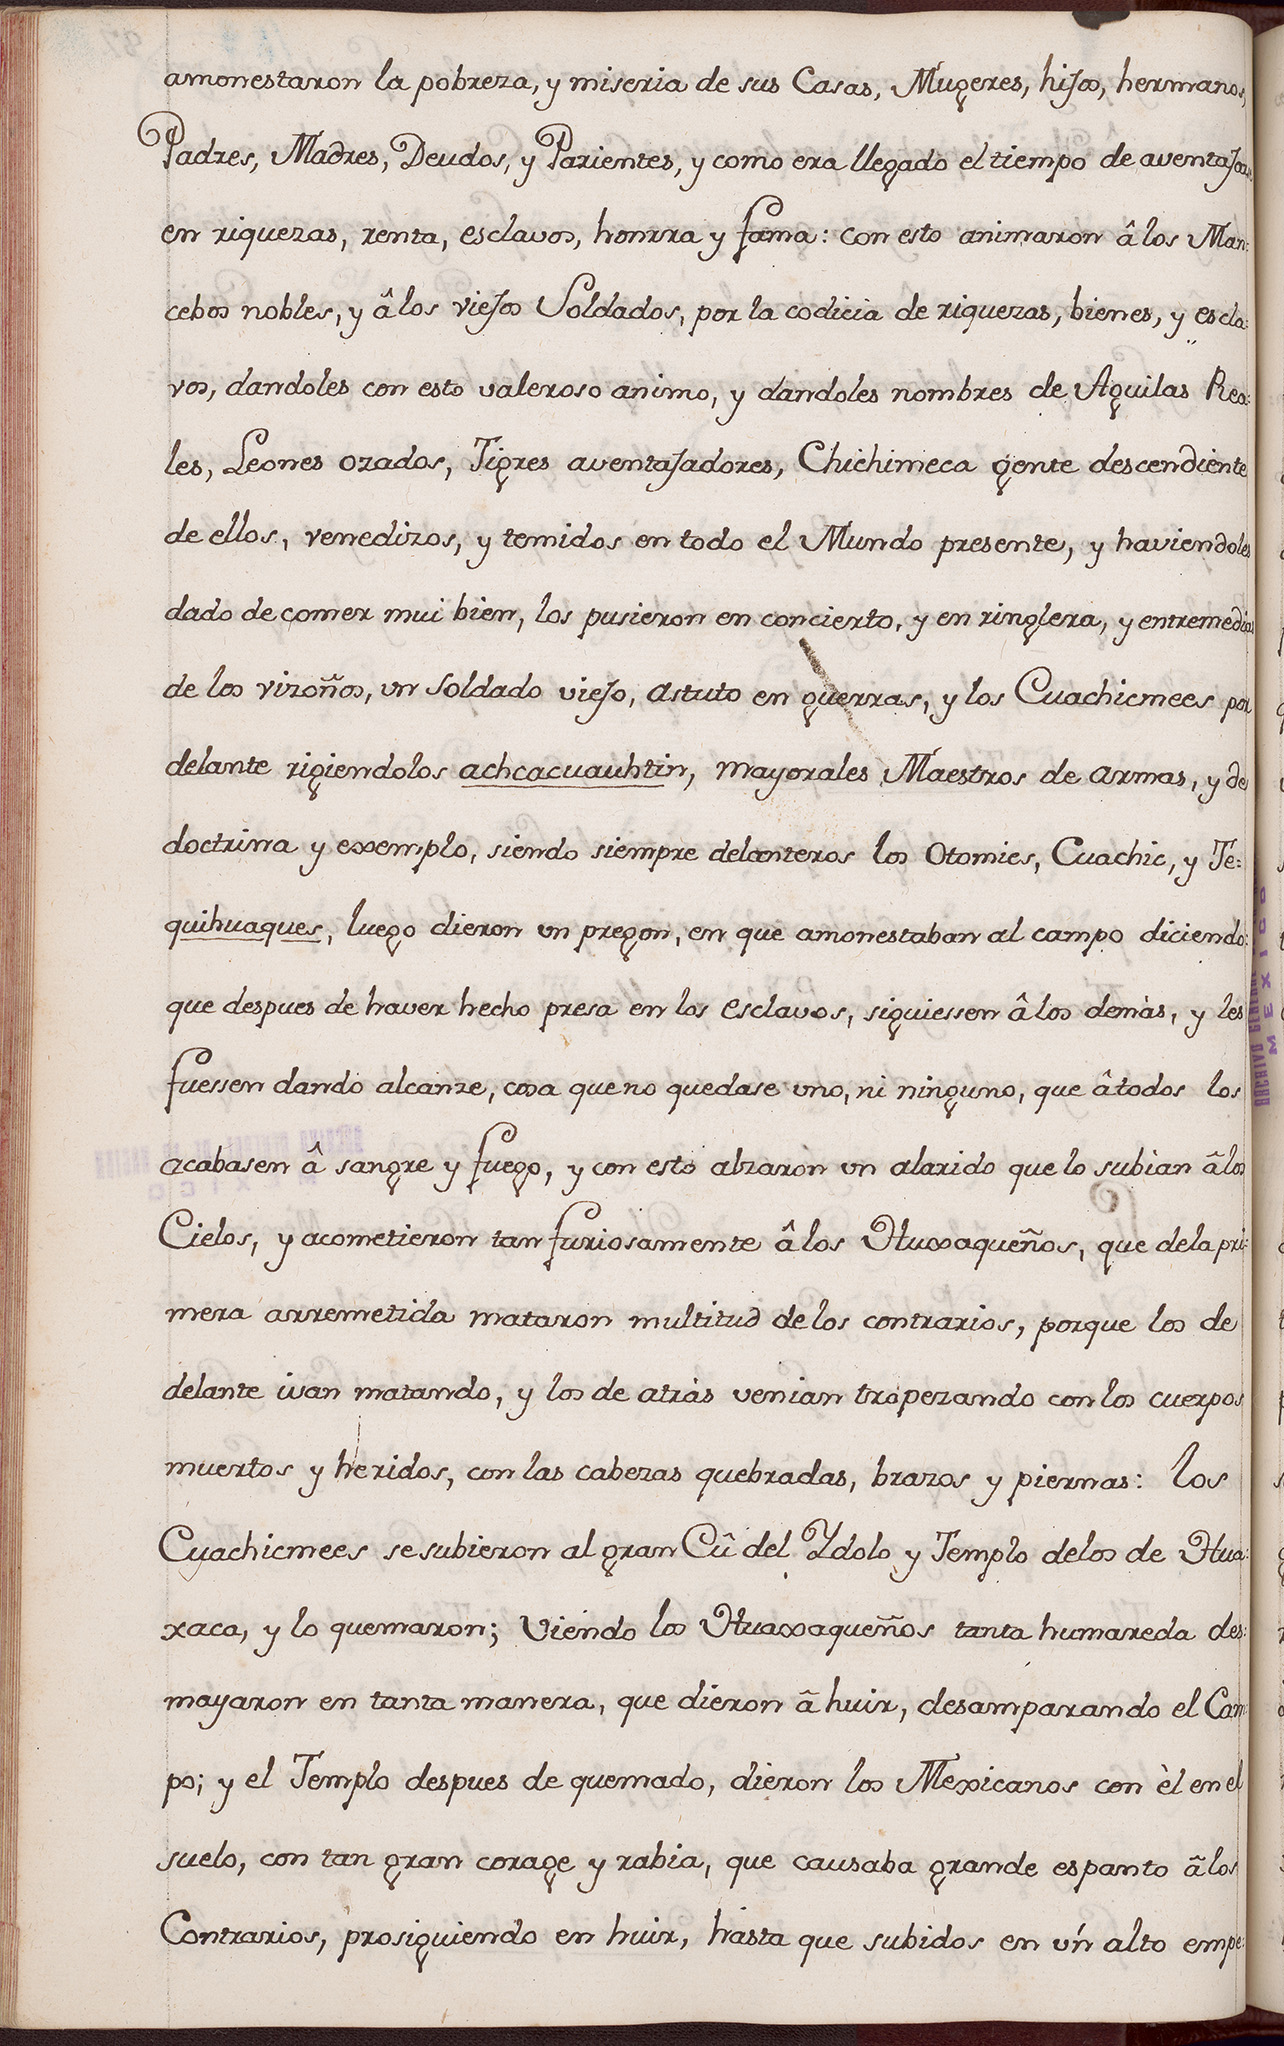 amonestaron la pobreza, y miseria de sus Casas, Mugeres, hijos, hermanos,
Padres, Madres, Deudos, y Parientes, y como era llegado el tiempo de aventajar
en riquezas, renta, esclavos, honrra y fama: con esto animaron â los Man:
cebos nobles, y â los viejos Soldados, por la codicia de riquezas, bienes, y escla:
vos, dandoles con esto valeroso animo, y dandoles nombres de Aguilas Rea:
les, Leones ozados, Tigres aventajadores, Chichimeca gente descendiente
de ellos, venedizos, y temidos en todo el Mundo presente, y haviendoles
dado de comer mui bien, los pusieron en concierto, y en ringlera, y entremedias
de los vizoños, un soldado viejo, astuto en guerras, y los Cuachicmees por
delante rigiendolos achcacuauhtin, mayorales Maestros de armas, y de
doctrina y exemplo, siendo siempre delanteros los Otomies, Cuachic, y Te:
quihuaques, luego dieron un pregon, en que amonestaban al campo diciendo:
que despues de haver hecho presa en los esclavos, siguiessen â los demàs, y les
fuessen dando alcanze, cosa que no quedase uno, ni ninguno, que â todos los
acabasen â sangre y fuego, y con esto alzaron un alarido que lo subian â los
Cielos, y acometieron tan furiosamente â los Huaxaqueños, que de la pri:
mera arremetida mataron multitud de los contrarios, porque los de
delante ivan matando, y los de atràs venian tropezando con los cuerpos
muertos y heridos, con las cabezas quebradas, brazos y piernas: los
Cuachicmees se subieron al gran Cû del Ydolo y Templo de los de Hua:
xaca, y lo quemaron; Viendo los Huaxaqueños tanta humareda des:
mayaron en tanta manera, que dieron â huir, desamparando el Cam:
po; y el Templo despues de quemado, dieron los Mexicanos con èl en el
suelo, con tan gran corage y rabia, que causaba grande espanto â los
Contrarios, prosiguiendo en huir, hasta que subidos en un alto empe: